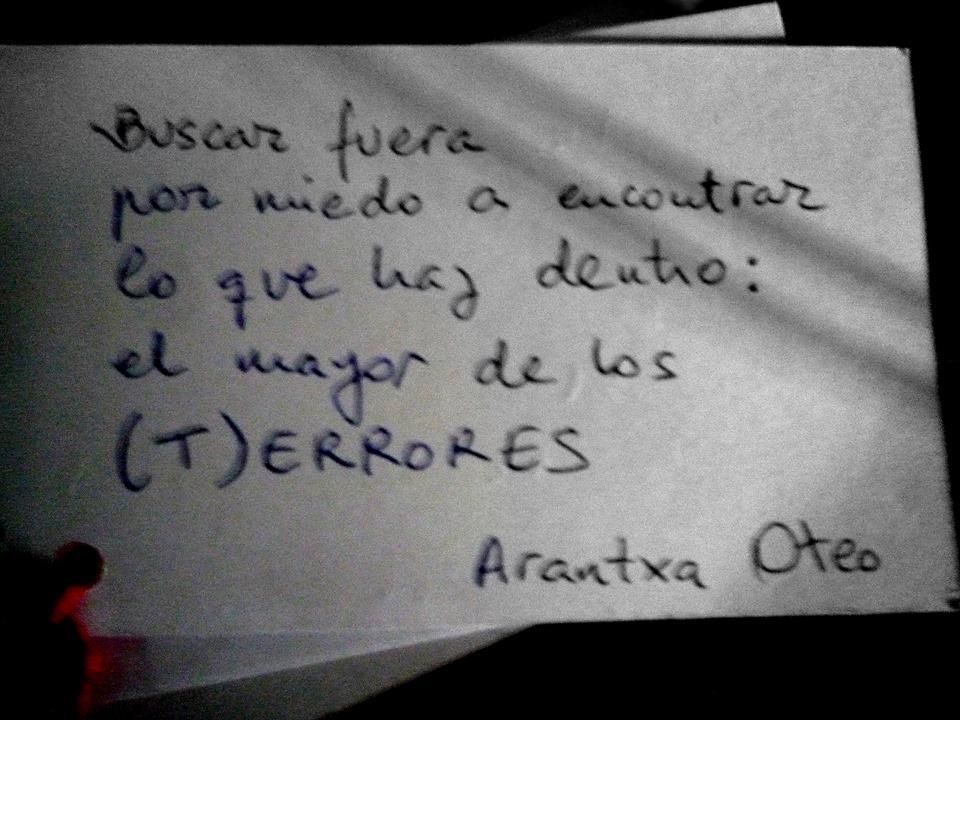 Buscar fuera
por miedo a encontrar
lo que hay dentro:
el mayor de los
(T)ERRORES
Arantxa Oteo